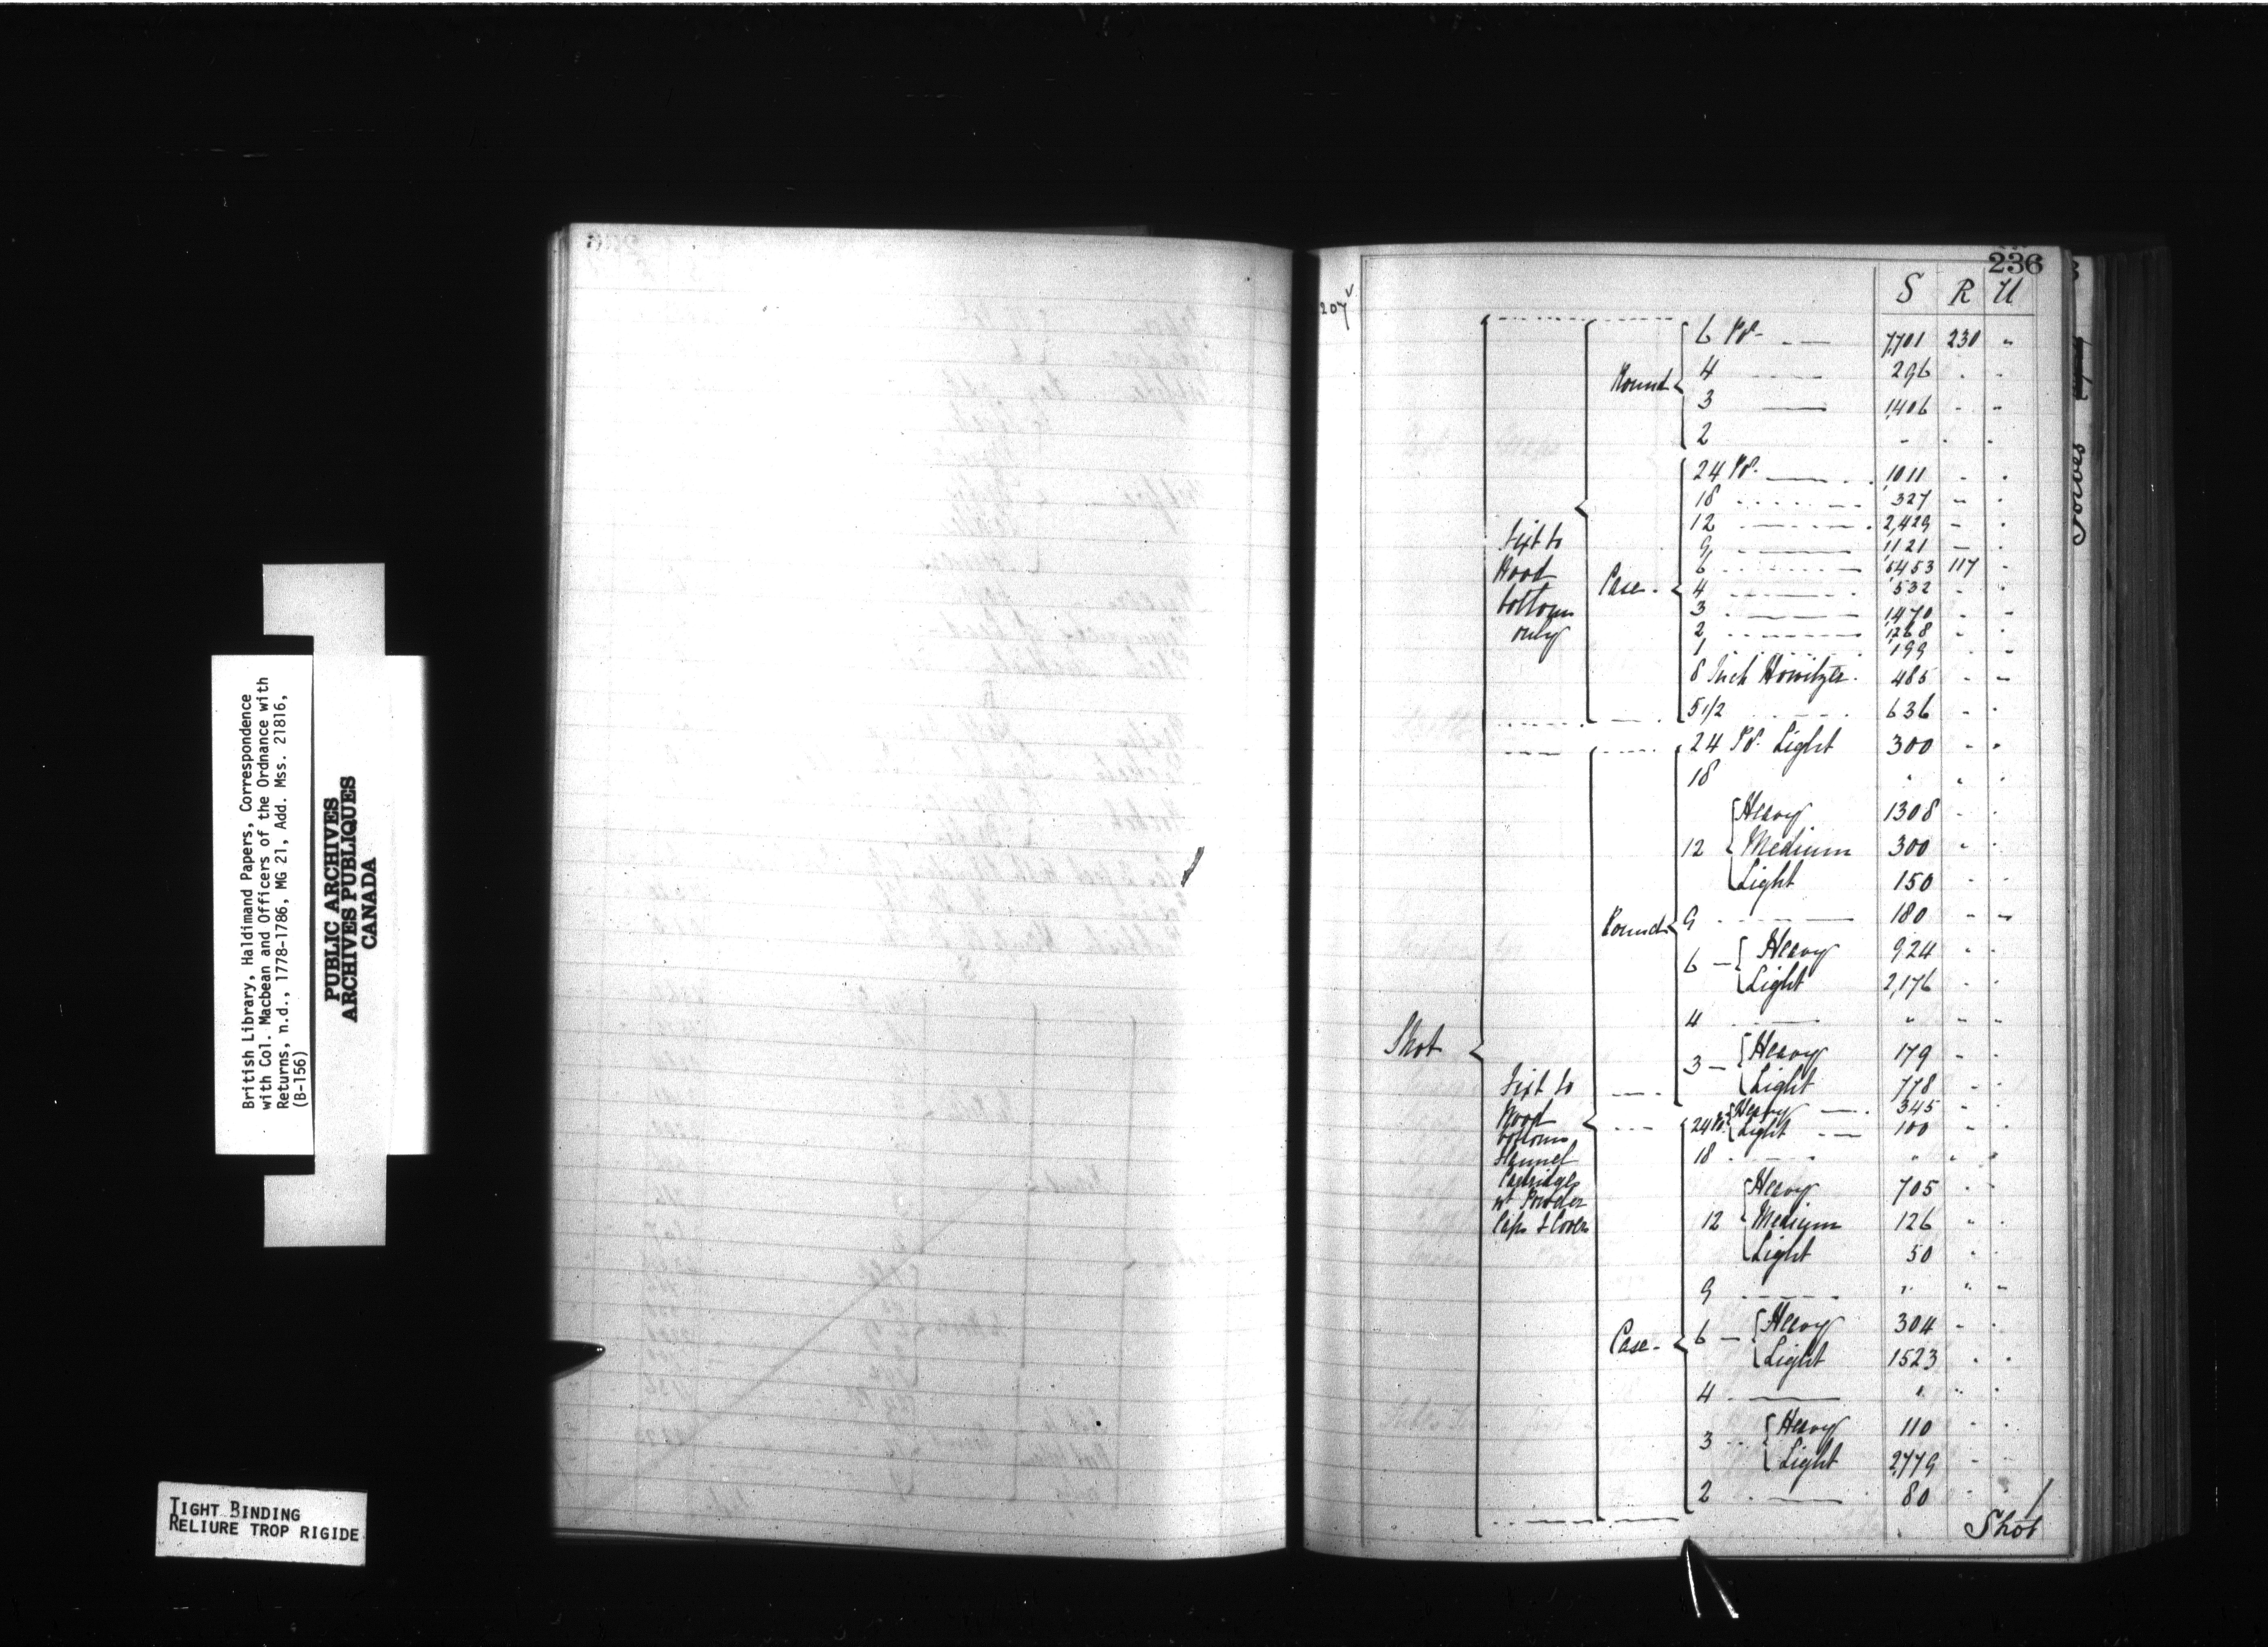 British Library, Haldimand Papers, Correspondence
with Col. Macbean and Officers of the Ordnance with
Returns, n.d., 1778-1786, MG 21, Add. Mss. 21816,
(B-156)
PUBLIC ARCHIVES
ARCHIVES PUBLIQUES
CANADA
TIGHT BINDING
RELIURE TROP RIGIDE
236
207v
S R U
Shot
Fixt to
Wood
bottoms
only
Round
6 Pr. 7,701 230 "
4 296 " "
3 1,406 " "
2 " " "
Case
24 Pr. 1,011 " "
18 327 " "
12 2,429 " "
9 1121 " "
6 6453 117 "
4 532 " "
3 1,470 " "
2 1,268 " "
1 199 " "
8 Inch Howitzer 485 " "
5 1/2 636 " "
Fixt to
Wood
bottoms
Flannel
Cartridges
wt Powder
Caps & Covers
Round
24 Pr. Light 300 " "
18 " " "
12 Heavy 1308 " "
Medium 300 " "
Light 150 " "
9 180 " "
6 Heavy 924 " "
Light 2,176 " "
4 " " "
3 Heavy 179 " "
Light 778 " "
Case
24 Pr. Heavy 345 " "
Light 100 " "
18 " " "
12 Heavy 705 " "
Medium 126 " "
Light 50 " "
9 " " "
6 Heavy 304 " "
Light 1523 " "
4 " " "
3 Heavy 110 " "
Light 2,779 " "
2 80 " "
Shot